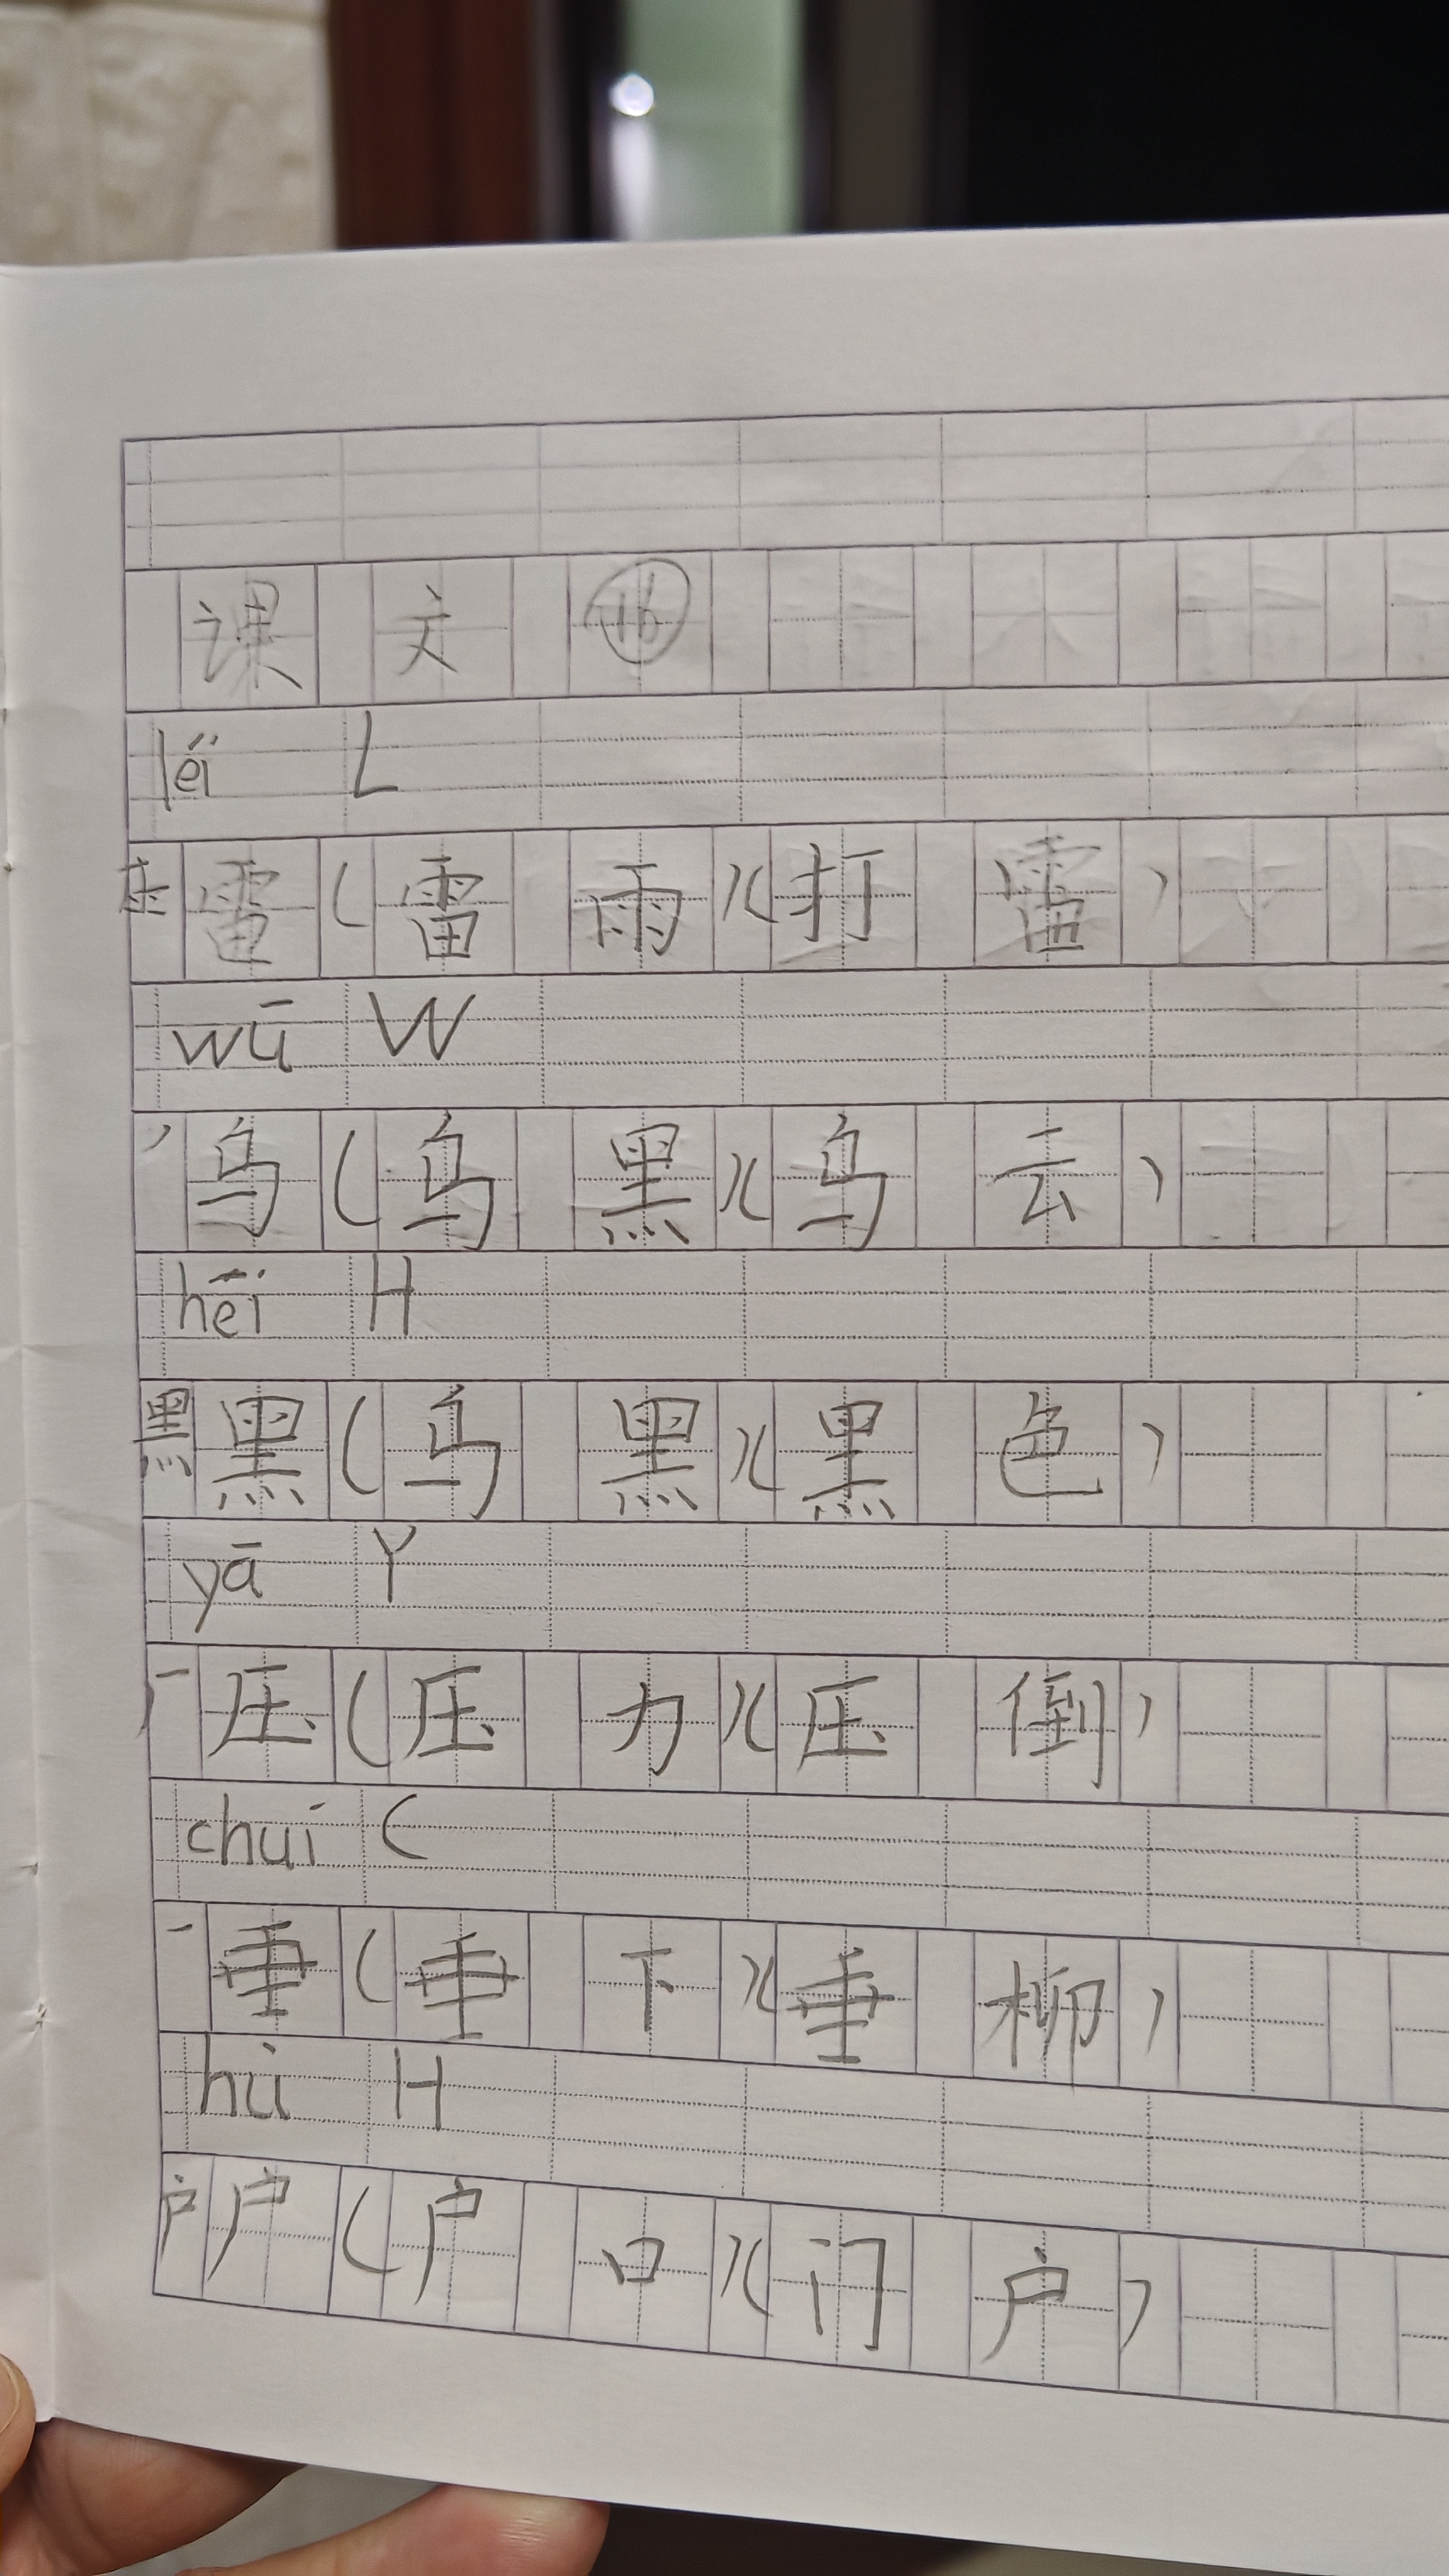 课文⑯
léi L
雷(雷雨)(打雷)
wū W
丿乌(乌黑)(乌云)
hēi H
黑黑(乌黑)(黑色)
yā Y
厂压(压力)(压倒)
chuí C
一垂(垂下)(垂柳)
hù H
户户(户口)(门户)